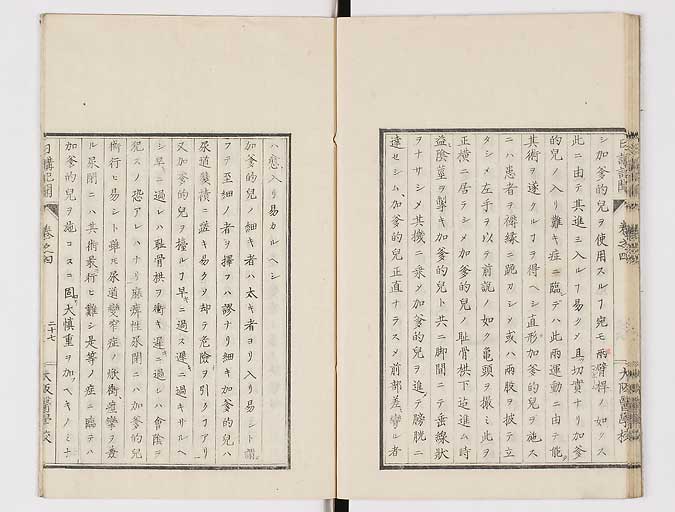 シ加爹的兒ヲ使用スルヿ宛モ兩臂桿ノ如クス
此ニ由テ其進ミ入ルヿ易クメ且切實ナリ加爹
的兒ノ入リ難キ症ニ臨デハ此兩運動ニ由テ能
其術ヲ遂クルヿヲ得ヘシ直形加爹的兒ヲ施ス
ニハ患者ヲ褥縁ニ跪カシメ或ハ兩股ヲ披テ立
タシメ左手ヲ以テ前説ノ如ク龜頭ヲ撮ミ此ヲ
正横ニ居ラシメ加爹的兒ノ恥骨栱下迠進ム時
益陰莖ヲ擧ケ加爹的兒ト共ニ脚間ニテ垂線狀
ヲナサシメ其機ニ乘メ加爹的兒ヲ進テ膀胱ニ
達セシム加爹的兒正直ナラスメ前部差彎ル者
日講記聞
卷之四
大阪醫學校
ハ入リ易カルヘシ
加爹的兒ノ細キ者ハ太キ者ヨリ入リ易シト謂
フテ至細ノ者ヲ擇フハ謬ナリ細キ加爹的兒ハ
尿道襞積ニ遮ヘ易クメ却テ危險ヲ引クヿアリ
又加爹的兒ヲ擡ルヿ早ニ過ス遲ニ過キサルヘ
シ早ニ過レハ恥骨栱ヲ衝キ遲ニ過レハ會陰ヲ
犯スノ恐アレハナリ麻痺性尿閉ニハ加爹的兒
術行ヒ易シト雖𪜈尿道變窄症ノ焮衝攣ヲ兼
ル尿閉ニハ其術最行ヒ難シ是等ノ症ニ臨テハ
加爹的兒ヲ施コスニ固大慎重ヲ加ヘキノミナ
日講記聞
卷之四
二十七
大阪醫學校